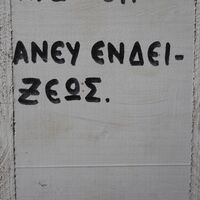 ΑΝΕΥ ΕΝΔΕΙ-
ΖΕΩΣ.